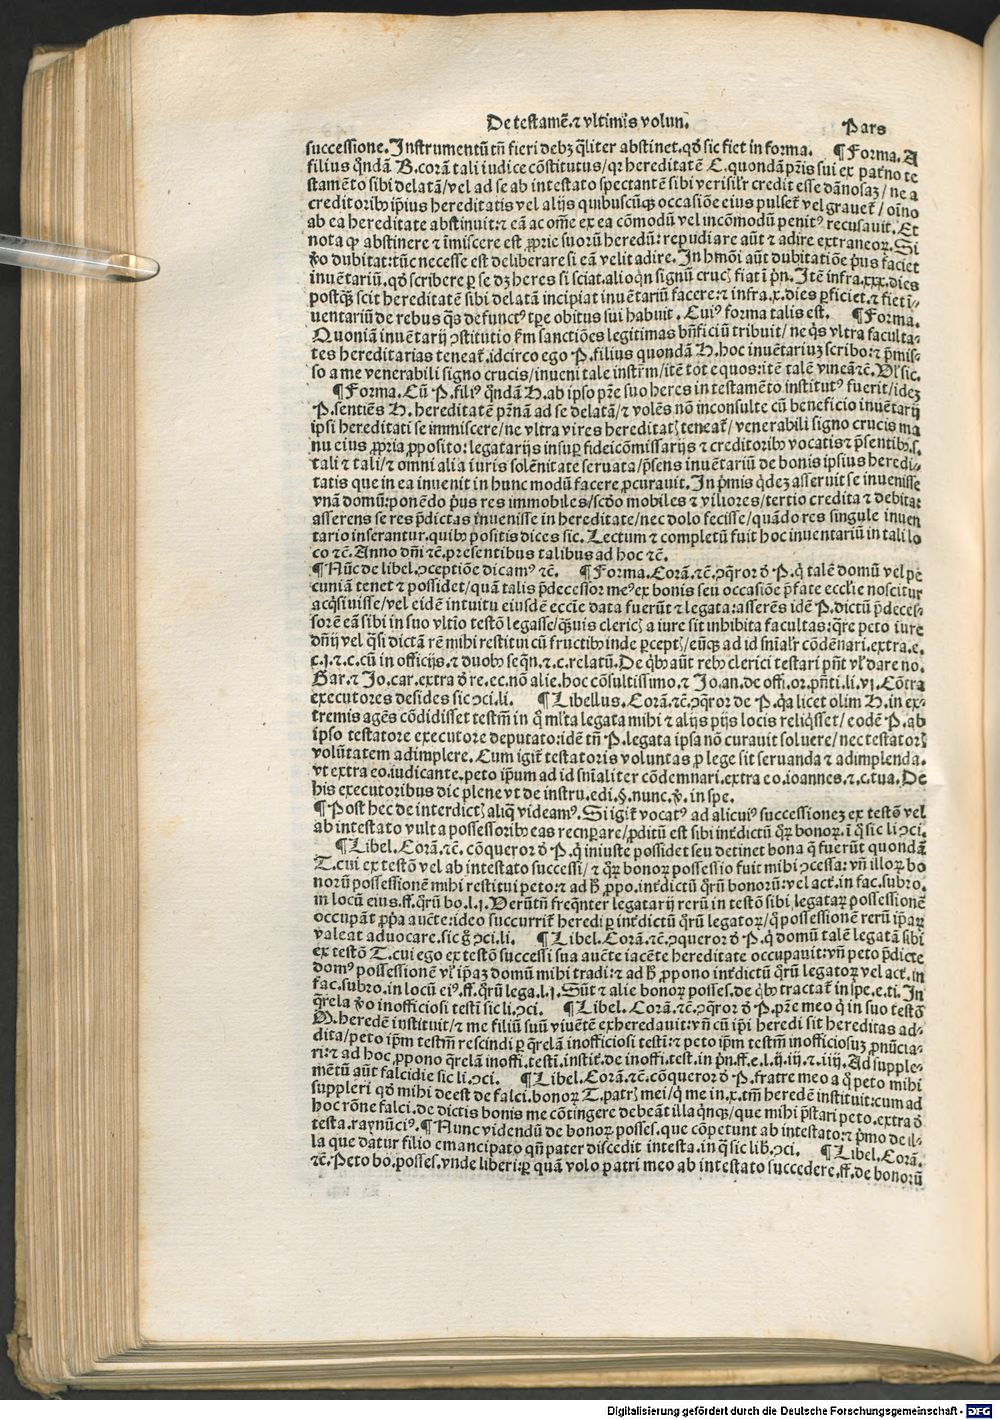 De testamē. ⁊ vltimis volun.
Pars
successione. Instrumentū tñ fieri debꝫ qͣliter abstinet. qđ sic fiet in forma. ¶ Forma. A
filius qͦndā B. corā tali iudice cōstitutus / qꝛ hereditatē C. quondā pr̄is sui ex patrͦno te
stamēto sibi delatā / vel ad se ab intestato spectantē sibi verisil'r credit esse dānosaꝫ / ne a
creditoribꝰ ip̄ius hereditatis vel alijs quibuscūqꝫ occasiōe eius pulset͛ vel grauet͛ / oīno
ab ea hereditate abstinuit: ⁊ eā ac om̄e ex ea cōmodū vel incōmodū penitꝰ recusauit. Et
nota ꝙ abstinere ⁊ īmiscere est ꝓprie suorū heredū: repudiare aūt ⁊ adire extraneoꝝ. Si
ꝟo dubitat: tūc necesse est deliberare si eā velit adire. In hmōi aūt dubitatiōe p̄us faciet
inuētariū. qđ scribere ꝑ se dꝫ heres si sciat. alioqͥn signū crucꝭ fiat ī pͥn. Itē infra. xxx. dies
postqͣꝫ scit hereditatē sibi delatā incipiat inuētariū facere: ⁊ infra. x. dies ꝑficiet. ⁊ fiet in-
uentariū de rebus qͣs defunctꝰ tꝑe obitus sui habuit. Cuiꝰ forma talis est. ¶ Forma.
Quoniā inuētarij ꝯstitutio ẜm sanctiōes legitimas bn̄ficiū tribuit / ne qͥs vltra faculta-
tes hereditarias teneat͛. idcirco ego P. filius quondā H. hoc inuētariuꝫ scribo: ⁊ p̄mis-
so a me venerabili signo crucis / inueni tale instr̄m / itē tot equos: itē talē vineā ⁊c̄. Vl' sic.
¶ Forma. Cū P. filiꝰ qͦndā H. ab ipso pr̄e suo heres in testamēto institutꝰ fuerit / ideꝫ
P. sentiēs H. hereditatē pr̄nā ad se delatā / ⁊ volēs nō inconsulte cū beneficio inuētarij
ipsi hereditati se immiscere / ne vltra vires hereditatꝭ teneat͛ / venerabili signo crucis ma
nu eius ꝓpria ꝓposito: legatarijs insuꝑ fideicōmissarijs ⁊ creditoribꝰ vocatis ⁊ p̄sentibꝰ. s.
tali ⁊ tali / ⁊ omni alia iuris solēnitate seruata / p̄sens inuētariū de bonis ipsius heredi-
tatis que in ea inuenit in hunc modū facere ꝓcurauit. In p̄mis qͥdeꝫ asseruit se inuenisse
vnā domū: ponēdo p̄us res immobiles / scd̄o mobiles ⁊ viliores / tertio credita ⁊ debita:
asserens se res p̄dictas inuenisse in hereditate / nec dolo fecisse / quādo res singule inuen
tario inserantur. quibꝰ positis dices sic. Lectum ⁊ completū fuit hoc inuentariū in tali lo
co ⁊c̄. Anno dn̄i ⁊c̄. presentibus talibus ad hoc ⁊c̄.
¶ Nūc de libel. ꝯceptiōe dicamꝰ ⁊c̄. ¶ Forma. Corā. ⁊c̄. ꝯqͣror đ P. qͥ talē domū vel pe
cuniā tenet ⁊ possidet / quā talis p̄decessor meꝰ ex bonis seu occasiōe p̄fate eccl'ie noscitur
acqͥsiuisse / vel eidē intuitu eiusdē eccīe data fuerūt ⁊ legata: asserēs idē P. dictū p̄deces-
sorē eā sibi in suo vltīo testō legasse / qͣuis clericꝭ a iure sit inhibita facultas: qͣre peto iure
dn̄ij vel qͣsi dictā rē mihi restitui cū fructibꝰ inde ꝑceptꝭ / eūqꝫ ad id sn̄ial'r cōdēnari. extra. e.
c. j. ⁊. c. cū in officijs. ⁊ duobꝰ seqͥn. ⁊. c. relatū. De qͥbꝰ aūt rebꝰ clerici testari pn̄t vl' dare no.
Gar. ⁊ Jo. car. extra đ re. ec. nō alie. hoc cōsultissimo. ⁊ Jo. an. de offi. or. pn̄ti. li. vj. Cōtra
executores desides sic ꝯci. li. ¶ Libellus. Corā. ⁊c̄. ꝯqͣror de P. qͥa licet olim H. in ex-
tremis agēs cōdidisset testm̄ in qͦ ml'ta legata mihi ⁊ alijs pijs locis reliqͥsset / eodē P. ab
ipso testatore executore deputato: idē tñ P. legata ipsa nō curauit soluere / nec testatorꝭ
volūtatem adimplere. Cum igit͛ testatoris voluntas ꝓ lege sit seruanda ⁊ adimplenda.
vt extra eo. iudicante. peto ip̄um ad id sn̄ialiter cōdemnari. extra eo. ioannes. ⁊. c. tua. De
his executoribus dic plene vt de instru. edi. §. nunc. ꝟ. in spe.
¶ Post hec de interdictꝭ aliqͣ videamꝰ. Si igit͛ vocatꝰ ad alicuiꝰ successioneꝫ ex testō vel
ab intestato vult a possessoribꝰ eas recuꝑare / ꝓditū est sibi int͛dictū qͦꝝ bonoꝝ. ī qͦ sic li ꝯci.
¶ Libel. Corā. ⁊c̄. cōqueror đ P. qͥ iniuste possidet seu detinet bona qͣ fuerūt quondā
T. cui ex testō vel ab intestato successi / ⁊ qͦꝝ bonoꝝ possessio fuit mihi ꝯcessa: vn̄ illoꝝ bo
norū possessionē mihi restitui peto: ⁊ ad ħ ꝓpo. int͛dictū qͦrū bonorū: vel act͛. in fac. subro.
in locū eius. ff. qͦrū bo. l. j. Verūtñ freqͣnter legatarij rerū in testō sibi legataꝝ possessionē
occupāt ꝓpͥa auc̄te: ideo succurrit͛ heredi ꝑ int͛dictū qͦrū legatoꝝ / qͥ possessionē rerū ip̄aꝝ
valeat aduocare. sic gͦ ꝯci. li. ¶ Libel. Corā. ⁊c̄. ꝯqueror đ P. qͥ domū talē legatā sibi
ex testō T. cui ego ex testō successi sua auc̄te iacēte hereditate occupauit: vn̄ peto p̄dicte
domꝰ possessionē vl' ip̄aꝫ domū mihi tradi: ⁊ ad ħ ꝓpono int͛dictū qͦrū legatoꝝ vel act͛. in
fac. subro. in locū eiꝰ. ff. qͦrū lega. l. j. Sūt ⁊ alie bonoꝝ posses. de qͥbꝰ tractat͛ in spe. e. ti. In
qͣrela ꝟo inofficiosi testi sic li. ꝯci. ¶ Libel. Corā. ⁊c̄. ꝯqͣror đ P. pr̄e meo qͥ in suo testō
M. heredē instituit / ⁊ me filiū suū viuētē exheredauit: vn̄ cū ip̄i heredi sit hereditas ad-
dita / peto ip̄m testm̄ rescindi ꝑ qͣrelā inofficiosi testi: ⁊ peto ip̄m testm̄ inofficiosuꝫ ꝓnūcia-
ri: ⁊ ad hoc ꝓpono qͣrelā inoffi. testi. instit͛. de inoffi. test. in pͥn. ff. e. l. ij. iij. ⁊. iiij. Ad supple-
mētū aūt falcidie sic li. ꝯci. ¶ Libel. Corā. ⁊c̄. cōqueror đ P. fratre meo a qͦ peto mihi
suppleri qđ mihi deest de falci. bonoꝝ T. patrꝭ mei / qͥ me in. x. tm̄ heredē instituit: cum ad
hoc rōne falci. de dictis bonis me cōtingere debeāt illa qͥnqꝫ / que mihi p̄stari peto. extra đ
testa. raynūciꝰ. ¶ Nunc videndū de bonoꝝ posses. que cōpetunt ab intestato: ⁊ p̄mo de il-
la que datur filio emancipato qn̄ pater discedit intesta. in qͣ sic lib. ꝯci. ¶ Libel. Corā.
⁊c̄. Peto bo. posses. vnde liberi: ꝑ quā volo patri meo ab intestato succedere. ff. de bonorū
Digitalisierung gefördert durch die Deutsche Forschungsgemeinschaft - DFG